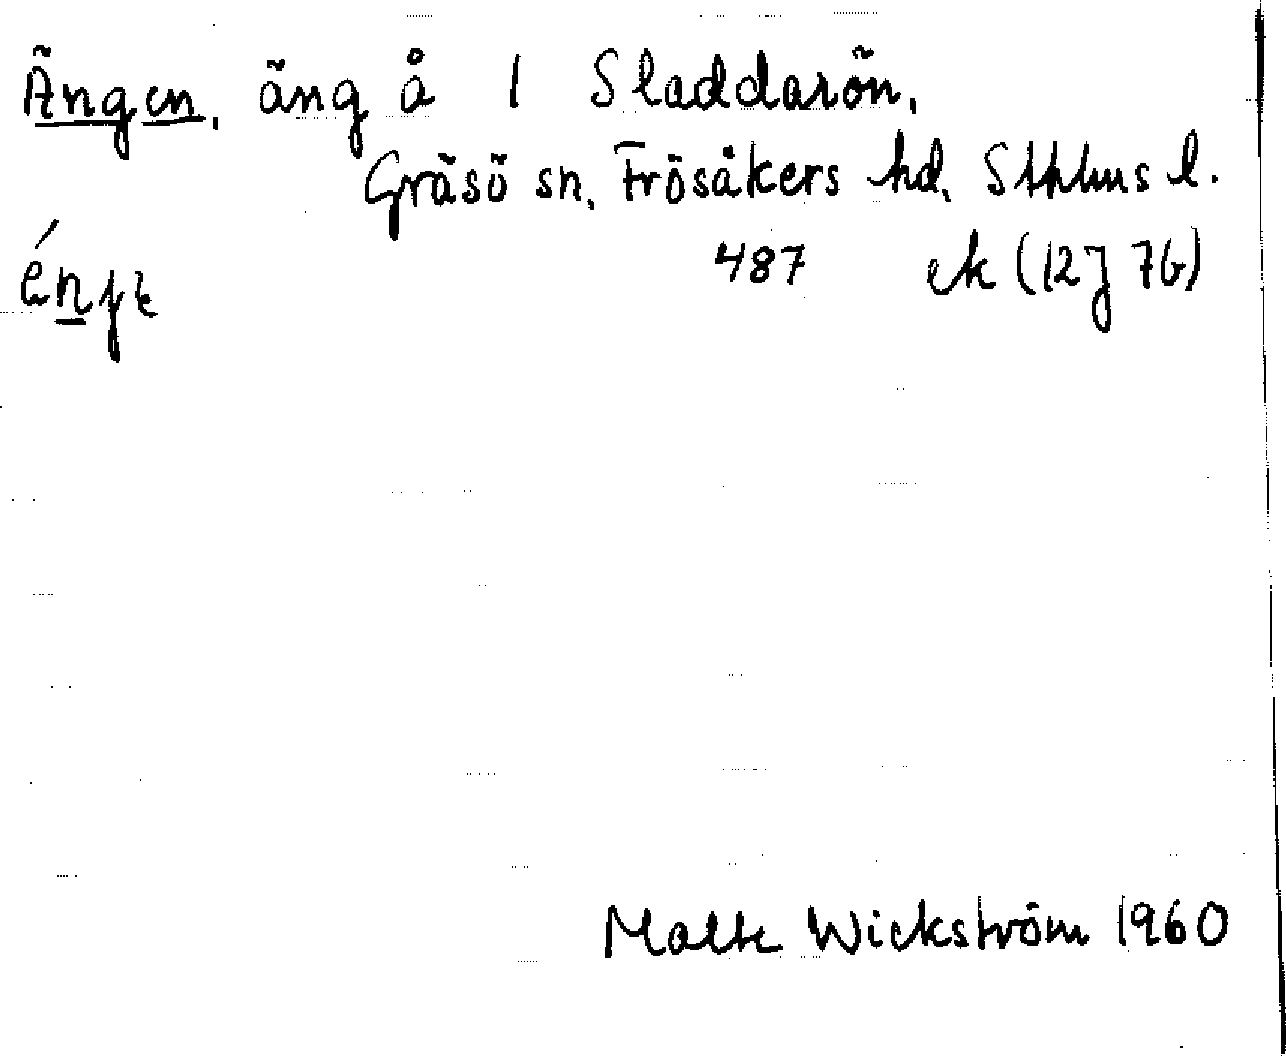 Ängen, äng å 1 Sladdarön,
Gräsö sn, Frösåkers hd, Sthlms l.
487 ek (12J 7G)
Malte Wickström 1960